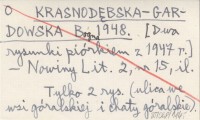 O KRASNODĘBSKA-GAR-
DOWSKA Bogna 1948. [Dwa
rysunki piórkiem z 1947 r.]
— Nowiny Lit. 2, nr 15, il.
Tylko 2 rys. (ulica we
wsi góralskiej i chaty góralskie).